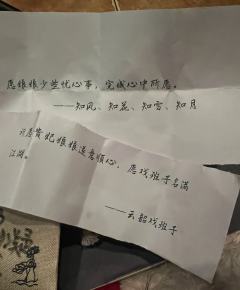 愿娘娘少些忧心事，完成心中所愿。
——知风、知花、知雪、知月
祝愿贵妃娘娘遂意顺心，愿戏班子名满
江湖。
——云韶戏班子